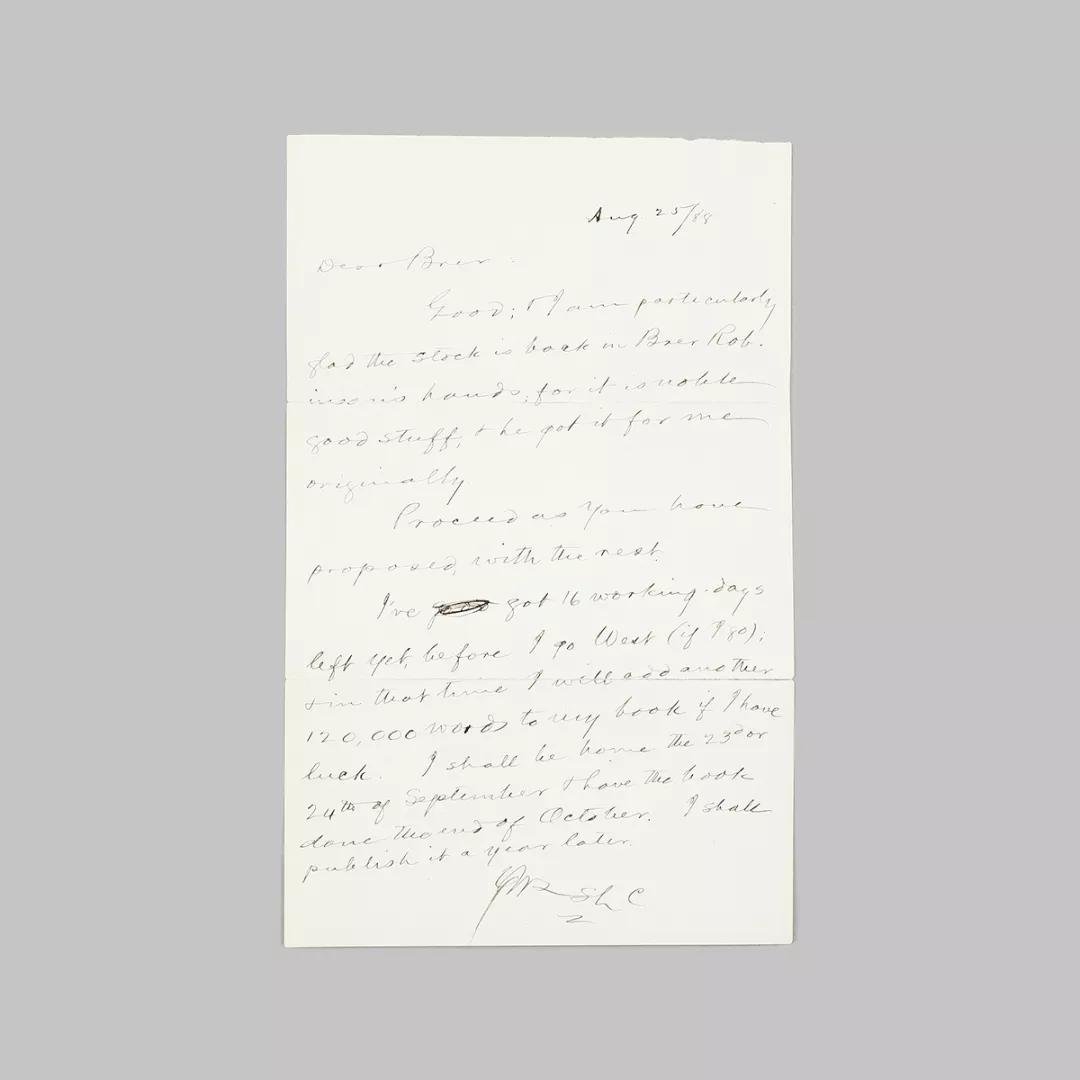 Aug 25/88
Dear Brer:
Good; & I am particularly
glad the stock is back in Brer Rob-
inson's hands, for it is noble
good stuff, & he got it for me
originally.
Proceed as you have
proposed, with the rest.
I've got 16 working-days
left yet, before I go West (if I go);
& in that time I will add another
120,000 words to my book if I have
luck. I shall be home the 23d or
24th of September & have the book
done the end of October. I shall
publish it a year later.
SLC